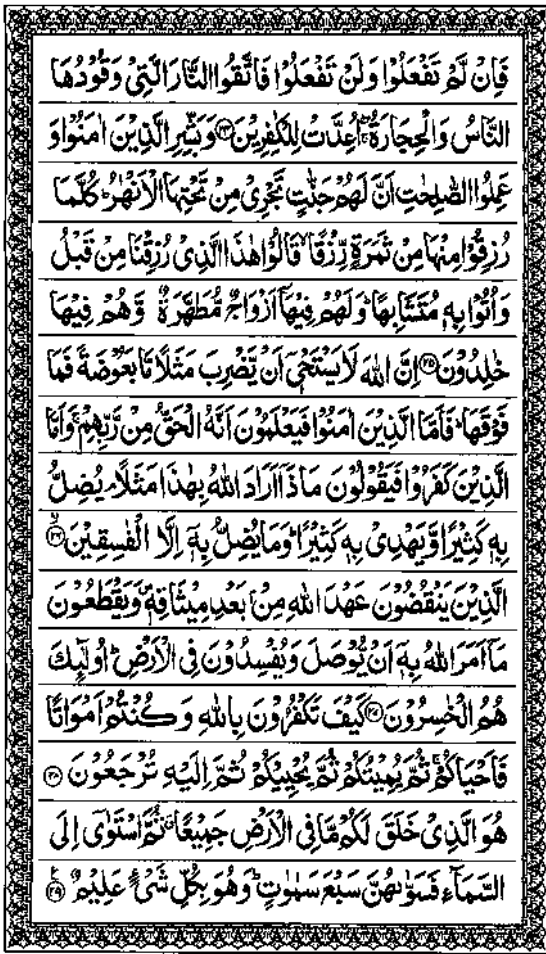 فَاِنْ لَّمْ تَفْعَلُوْا وَلَنْ تَفْعَلُوْا فَاتَّقُوا النَّارَ الَّتِیْ وَقُوْدُهَا
النَّاسُ وَالْحِجَارَةُ ۖۚ اُعِدَّتْ لِلْكٰفِرِیْنَ ﴿۲۴﴾ وَبَشِّرِ الَّذِیْنَ اٰمَنُوْا وَ
عَمِلُوا الصّٰلِحٰتِ اَنَّ لَهُمْ جَنّٰتٍ تَجْرِیْ مِنْ تَحْتِهَا الْاَنْهٰرُ ؕ كُلَّمَا
رُزِقُوْا مِنْهَا مِنْ ثَمَرَةٍ رِّزْقًا ۙ قَالُوْا هٰذَا الَّذِیْ رُزِقْنَا مِنْ قَبْلُ
وَاُتُوْا بِهٖ مُتَشَابِهًا ؕ وَلَهُمْ فِیْهَاۤ اَزْوَاجٌ مُّطَهَّرَةٌ وَّهُمْ فِیْهَا
خٰلِدُوْنَ ﴿۲۵﴾ اِنَّ اللهَ لَا یَسْتَحْیٖۤ اَنْ یَّضْرِبَ مَثَلًا مَّا بَعُوْضَةً فَمَا
فَوْقَهَا ؕ فَاَمَّا الَّذِیْنَ اٰمَنُوْا فَیَعْلَمُوْنَ اَنَّهُ الْحَقُّ مِنْ رَّبِّهِمْ ۚ وَاَمَّا
الَّذِیْنَ كَفَرُوْا فَیَقُوْلُوْنَ مَاذَاۤ اَرَادَ اللهُ بِهٰذَا مَثَلًا ۘ یُضِلُّ
بِهٖ كَثِیْرًا وَّیَهْدِیْ بِهٖ كَثِیْرًا ؕ وَمَا یُضِلُّ بِهٖۤ اِلَّا الْفٰسِقِیْنَ ﴿۲۶﴾ ۙ
الَّذِیْنَ یَنْقُضُوْنَ عَهْدَ اللهِ مِنْۢ بَعْدِ مِیْثَاقِهٖ ۪ وَیَقْطَعُوْنَ
مَاۤ اَمَرَ اللهُ بِهٖۤ اَنْ یُّوْصَلَ وَیُفْسِدُوْنَ فِی الْاَرْضِ ؕ اُولٰٓئِكَ
هُمُ الْخٰسِرُوْنَ ﴿۲۷﴾ كَیْفَ تَكْفُرُوْنَ بِاللهِ وَكُنْتُمْ اَمْوَاتًا
فَاَحْیَاكُمْ ۚ ثُمَّ یُمِیْتُكُمْ ثُمَّ یُحْیِیْكُمْ ثُمَّ اِلَیْهِ تُرْجَعُوْنَ ﴿۲۸﴾
هُوَ الَّذِیْ خَلَقَ لَكُمْ مَّا فِی الْاَرْضِ جَمِیْعًا ۗ ثُمَّ اسْتَوٰۤی اِلَی
السَّمَآءِ فَسَوّٰىهُنَّ سَبْعَ سَمٰوٰتٍ ؕ وَهُوَ بِكُلِّ شَیْءٍ عَلِیْمٌ ﴿۲۹﴾